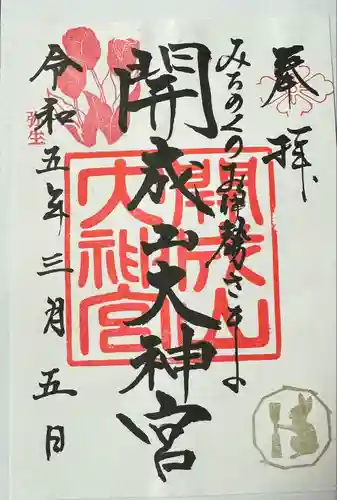 奉拝
みちのくのお伊勢さま
開成山大神宮
開成山
大神宮
令和五年三月五日
弥生